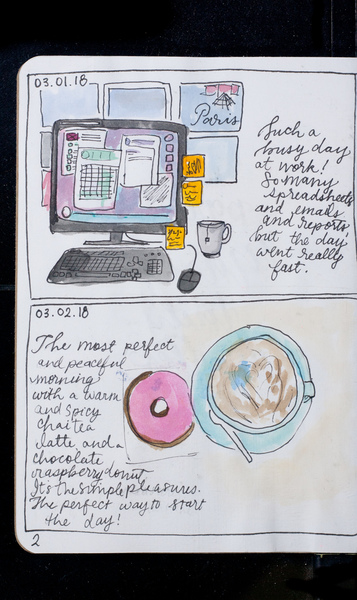 03.01.18
Paris
Such a
busy day
at work!
So many
spreadsheets
and emails
and reports
but the day
went really
fast.
03.02.18
The most perfect
and peaceful
morning
with a warm
and spicy
chai tea
latte and a
chocolate
raspberry donut
It's the simple pleasures.
The perfect way to start
the day!
2